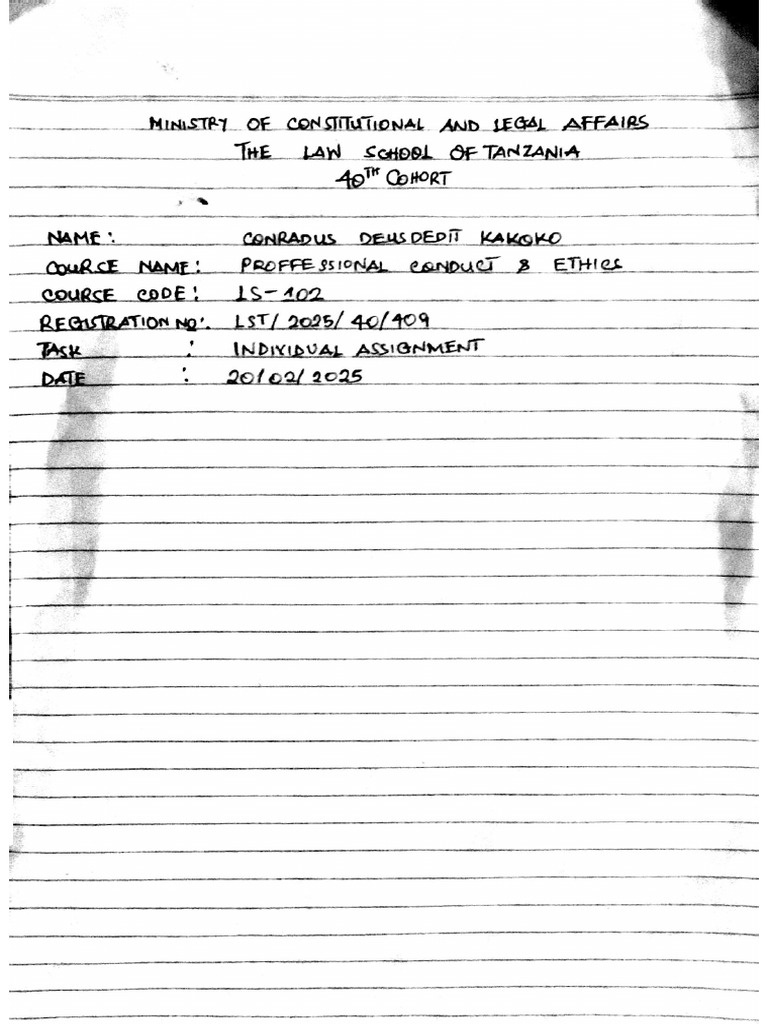 MINISTRY OF CONSTITUTIONAL AND LEGAL AFFAIRS
THE LAW SCHOOL OF TANZANIA
40TH COHORT
NAME: CONRADUS DEUSDEDIT KAKOKO
COURSE NAME: PROFFESSIONAL CONDUCT & ETHICS
COURSE CODE: LS-102
REGISTRATION NO: LST/2025/40/409
TASK : INDIVIDUAL ASSIGNMENT
DATE : 20/02/2025